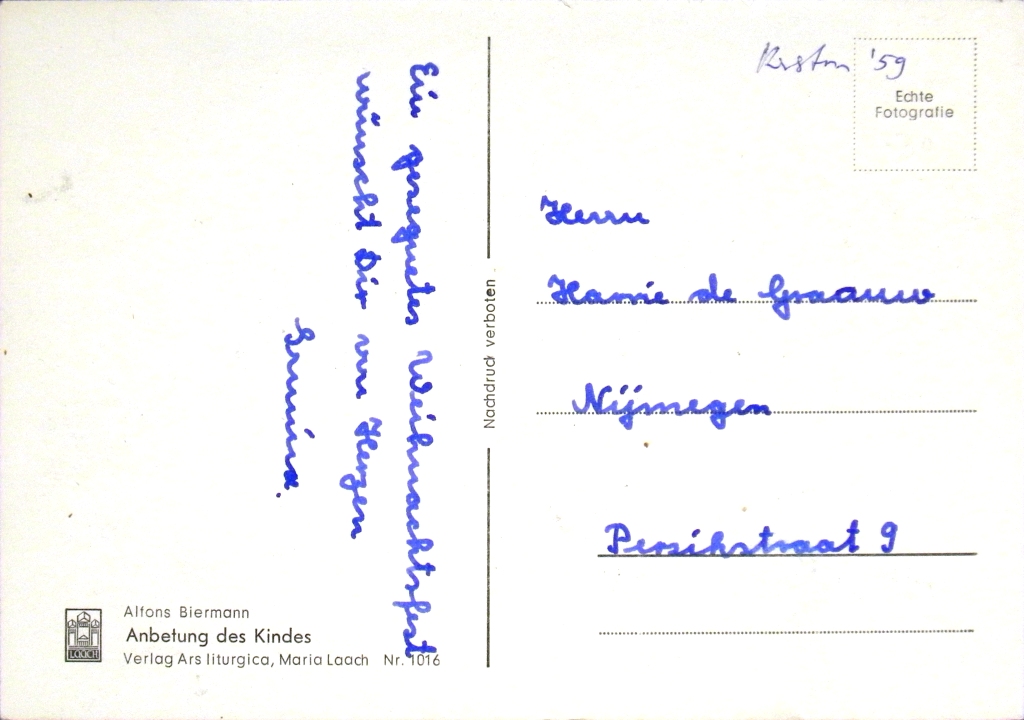 Ein gesegnetes Weihnachtsfest
wünscht Dir von Herzen
'59
Echte
Fotografie
Herrn
de Graauw
Nijmegen
Perzikstraat 9
Nachdruck verboten
LAACH
Alfons Biermann
Anbetung des Kindes
Verlag Ars liturgica, Maria Laach Nr. 1016